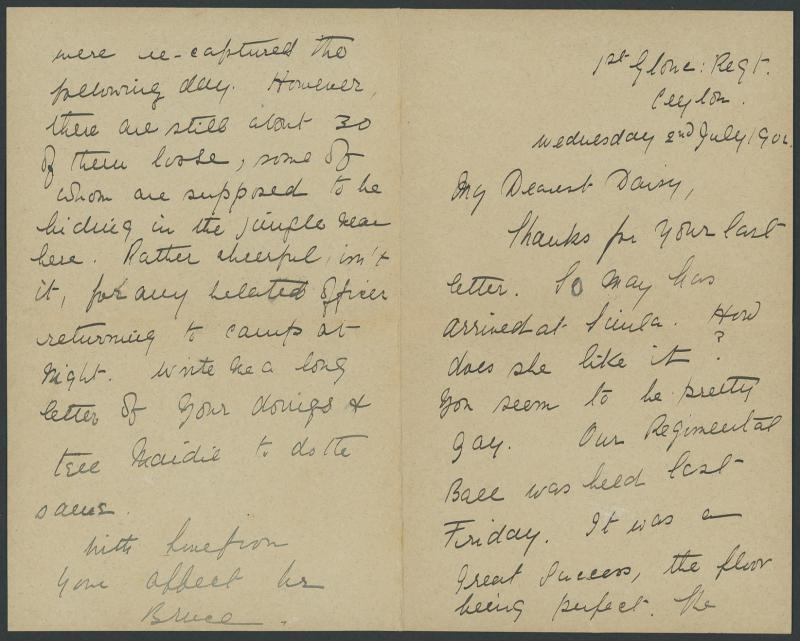 1st Glouc: Regt.
Ceylon.
Wednesday 2nd July 1902.
My Dearest Daisy,
Thanks for your last
letter. So May has
arrived at Simla. How
does she like it?
You seem to be pretty
gay. Our Regimental
Ball was held last
Friday. It was a
great success, the floor
being perfect. The
were re-captured the
following day. However,
there are still about 30
of them loose, some of
whom are supposed to be
hiding in the jungle near
here. Rather cheerful, isn't
it, for any belated officer
returning to camp at
night. Write me a long
letter of your doings &
tell Maidie to do the
same.
With love from
your affect br
Bruce.